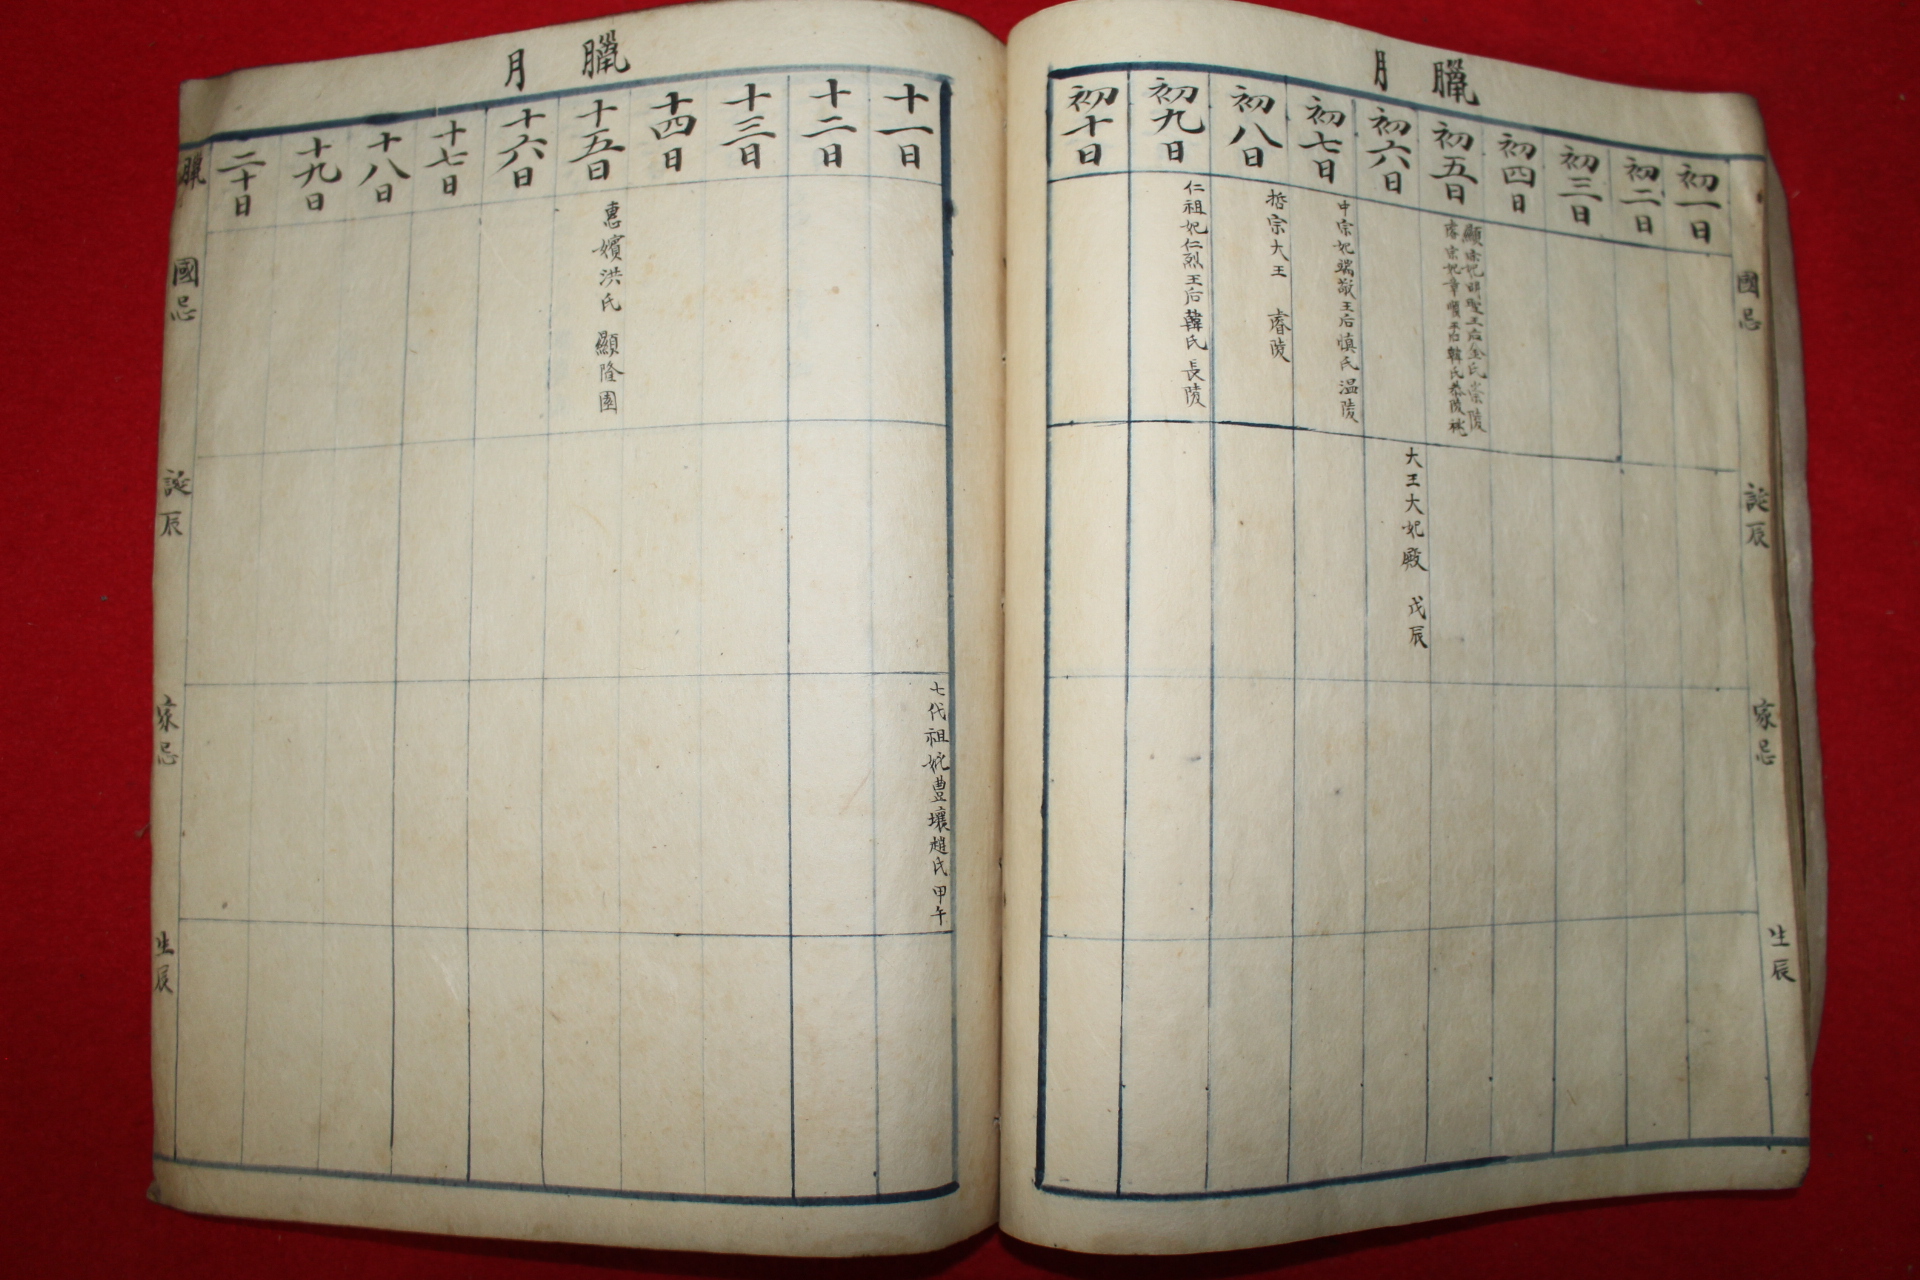 臘月
國忌
誕辰
家忌
生辰
初一日
初二日
初三日
初四日
初五日
顯宗妃明聖王后金氏崇陵
睿宗妃章順王后韓氏恭陵祧
初六日
大王大妃殿 戊辰
初七日
中宗妃端敬王后愼氏 温陵
初八日
哲宗大王 睿陵
初九日
仁祖妃仁烈王后韓氏 長陵
初十日
臘月
十一日
七代祖妣豊壤趙氏 甲午
十二日
十三日
十四日
十五日
惠嬪洪氏 顯隆園
十六日
十七日
十八日
十九日
二十日
臘
國忌
誕辰
家忌
生辰